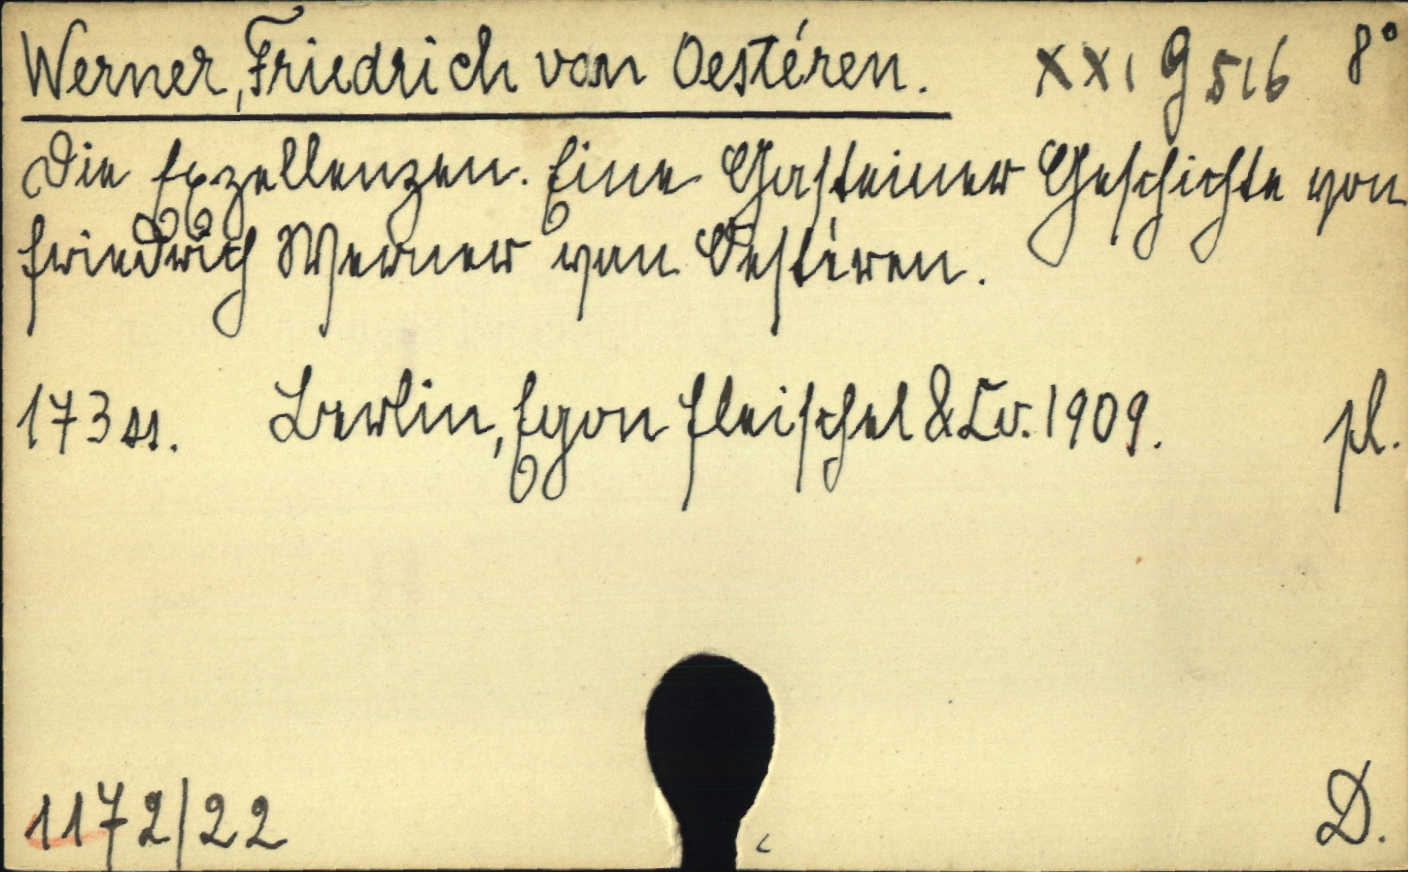 Werner, Friedrich van Oestéren. XXI G 516 8°
Die Exzellenzen. Eine Gasteiner Geschichte von
Friedrich Werner van Oestéren.
173 ss. Berlin, Egon Fleischel & Co. 1909. pl.
1172/22 D.